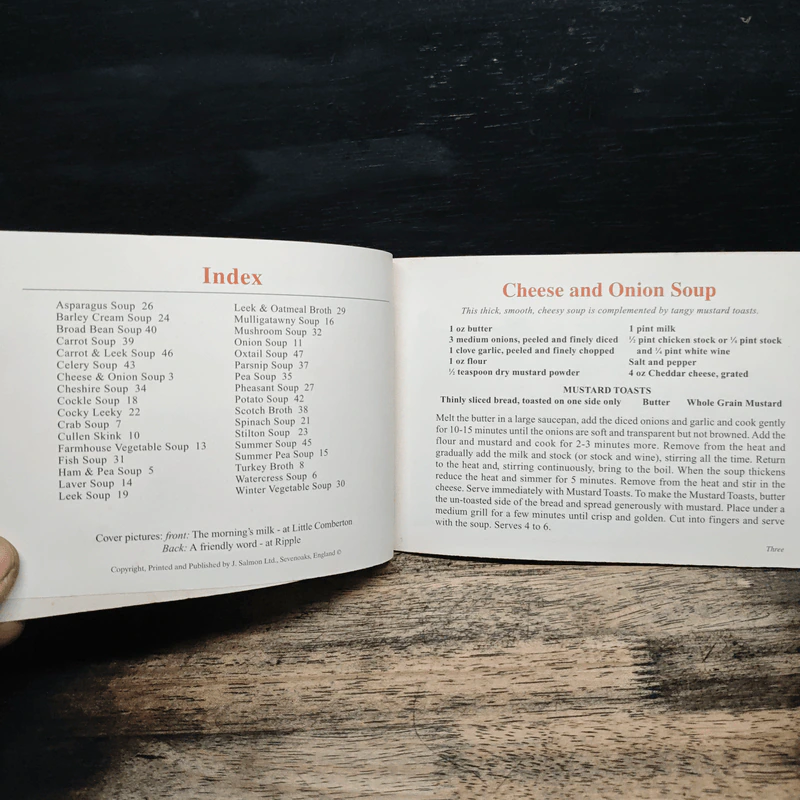 Index
Asparagus Soup 26
Barley Cream Soup 24
Broad Bean Soup 40
Carrot Soup 39
Carrot & Leek Soup 46
Celery Soup 43
Cheese & Onion Soup 3
Cheshire Soup 34
Cockle Soup 18
Cocky Leeky 22
Crab Soup 7
Cullen Skink 10
Farmhouse Vegetable Soup 13
Fish Soup 31
Ham & Pea Soup 5
Laver Soup 14
Leek Soup 19
Leek & Oatmeal Broth 29
Mulligatawny Soup 16
Mushroom Soup 32
Onion Soup 11
Oxtail Soup 47
Parsnip Soup 37
Pea Soup 35
Pheasant Soup 27
Potato Soup 42
Scotch Broth 38
Spinach Soup 21
Stilton Soup 23
Summer Soup 45
Summer Pea Soup 15
Turkey Broth 8
Watercress Soup 6
Winter Vegetable Soup 30
Cover pictures: front: The morning's milk - at Little Comberton
Back: A friendly word - at Ripple
Copyright, Printed and Published by J. Salmon Ltd., Sevenoaks, England ©
Cheese and Onion Soup
This thick, smooth, cheesy soup is complemented by tangy mustard toasts.
1 oz butter
3 medium onions, peeled and finely diced
1 clove garlic, peeled and finely chopped
1 oz flour
½ teaspoon dry mustard powder
1 pint milk
½ pint chicken stock or ¼ pint stock
and ¼ pint white wine
Salt and pepper
4 oz Cheddar cheese, grated
MUSTARD TOASTS
Thinly sliced bread, toasted on one side only Butter Whole Grain Mustard
Melt the butter in a large saucepan, add the diced onions and garlic and cook gently
for 10-15 minutes until the onions are soft and transparent but not browned. Add the
flour and mustard and cook for 2-3 minutes more. Remove from the heat and
gradually add the milk and stock (or stock and wine), stirring all the time. Return
to the heat and, stirring continuously, bring to the boil. When the soup thickens
reduce the heat and simmer for 5 minutes. Remove from the heat and stir in the
cheese. Serve immediately with Mustard Toasts. To make the Mustard Toasts, butter
the un-toasted side of the bread and spread generously with mustard. Place under a
medium grill for a few minutes until crisp and golden. Cut into fingers and serve
with the soup. Serves 4 to 6.
Three